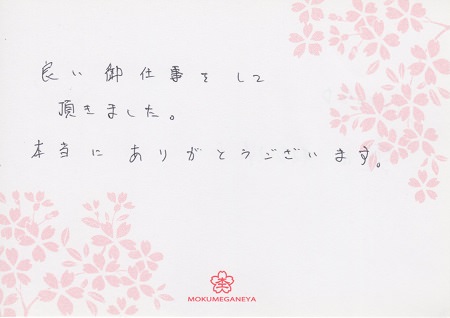 良い御仕事をして
頂きました。
本当にありがとうございます。
MOKUMEGANEYA